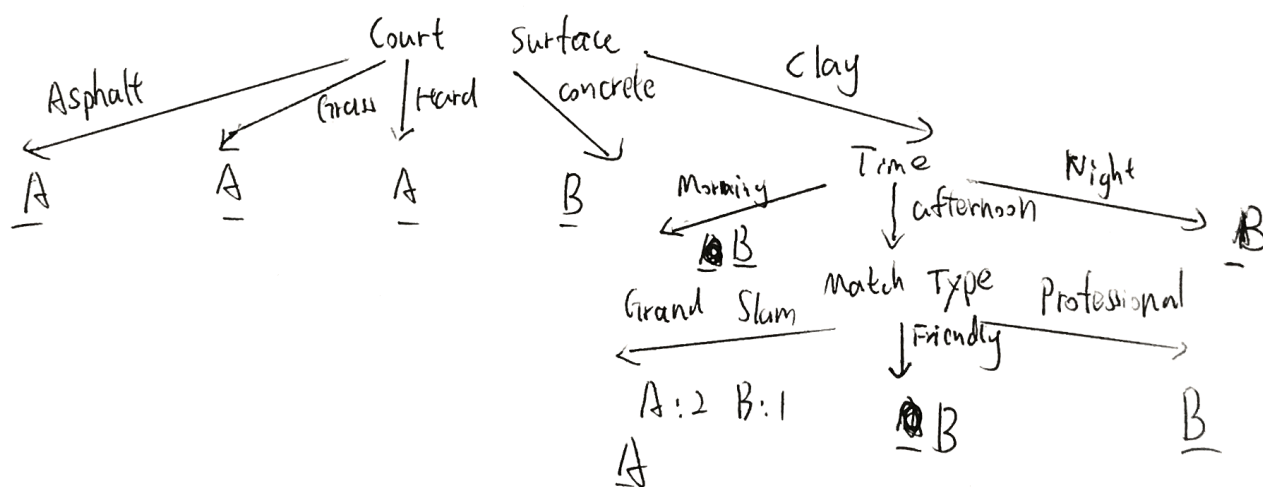 Court Surface
Asphalt Grass Hard concrete Clay
A A A B Time
Morning afternoon Night
B B
Match Type
Grand Slam Friendly Professional
A:2 B:1 B B
A